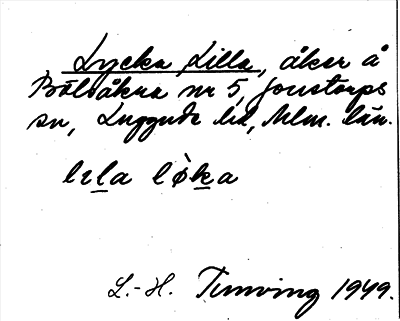 Lycka, Lilla, åker å
Bölsåkra nr 5, Jonstorps
sn, Luggude hd, Mlm. län.
lila løka
L.-H. Tunving 1949.